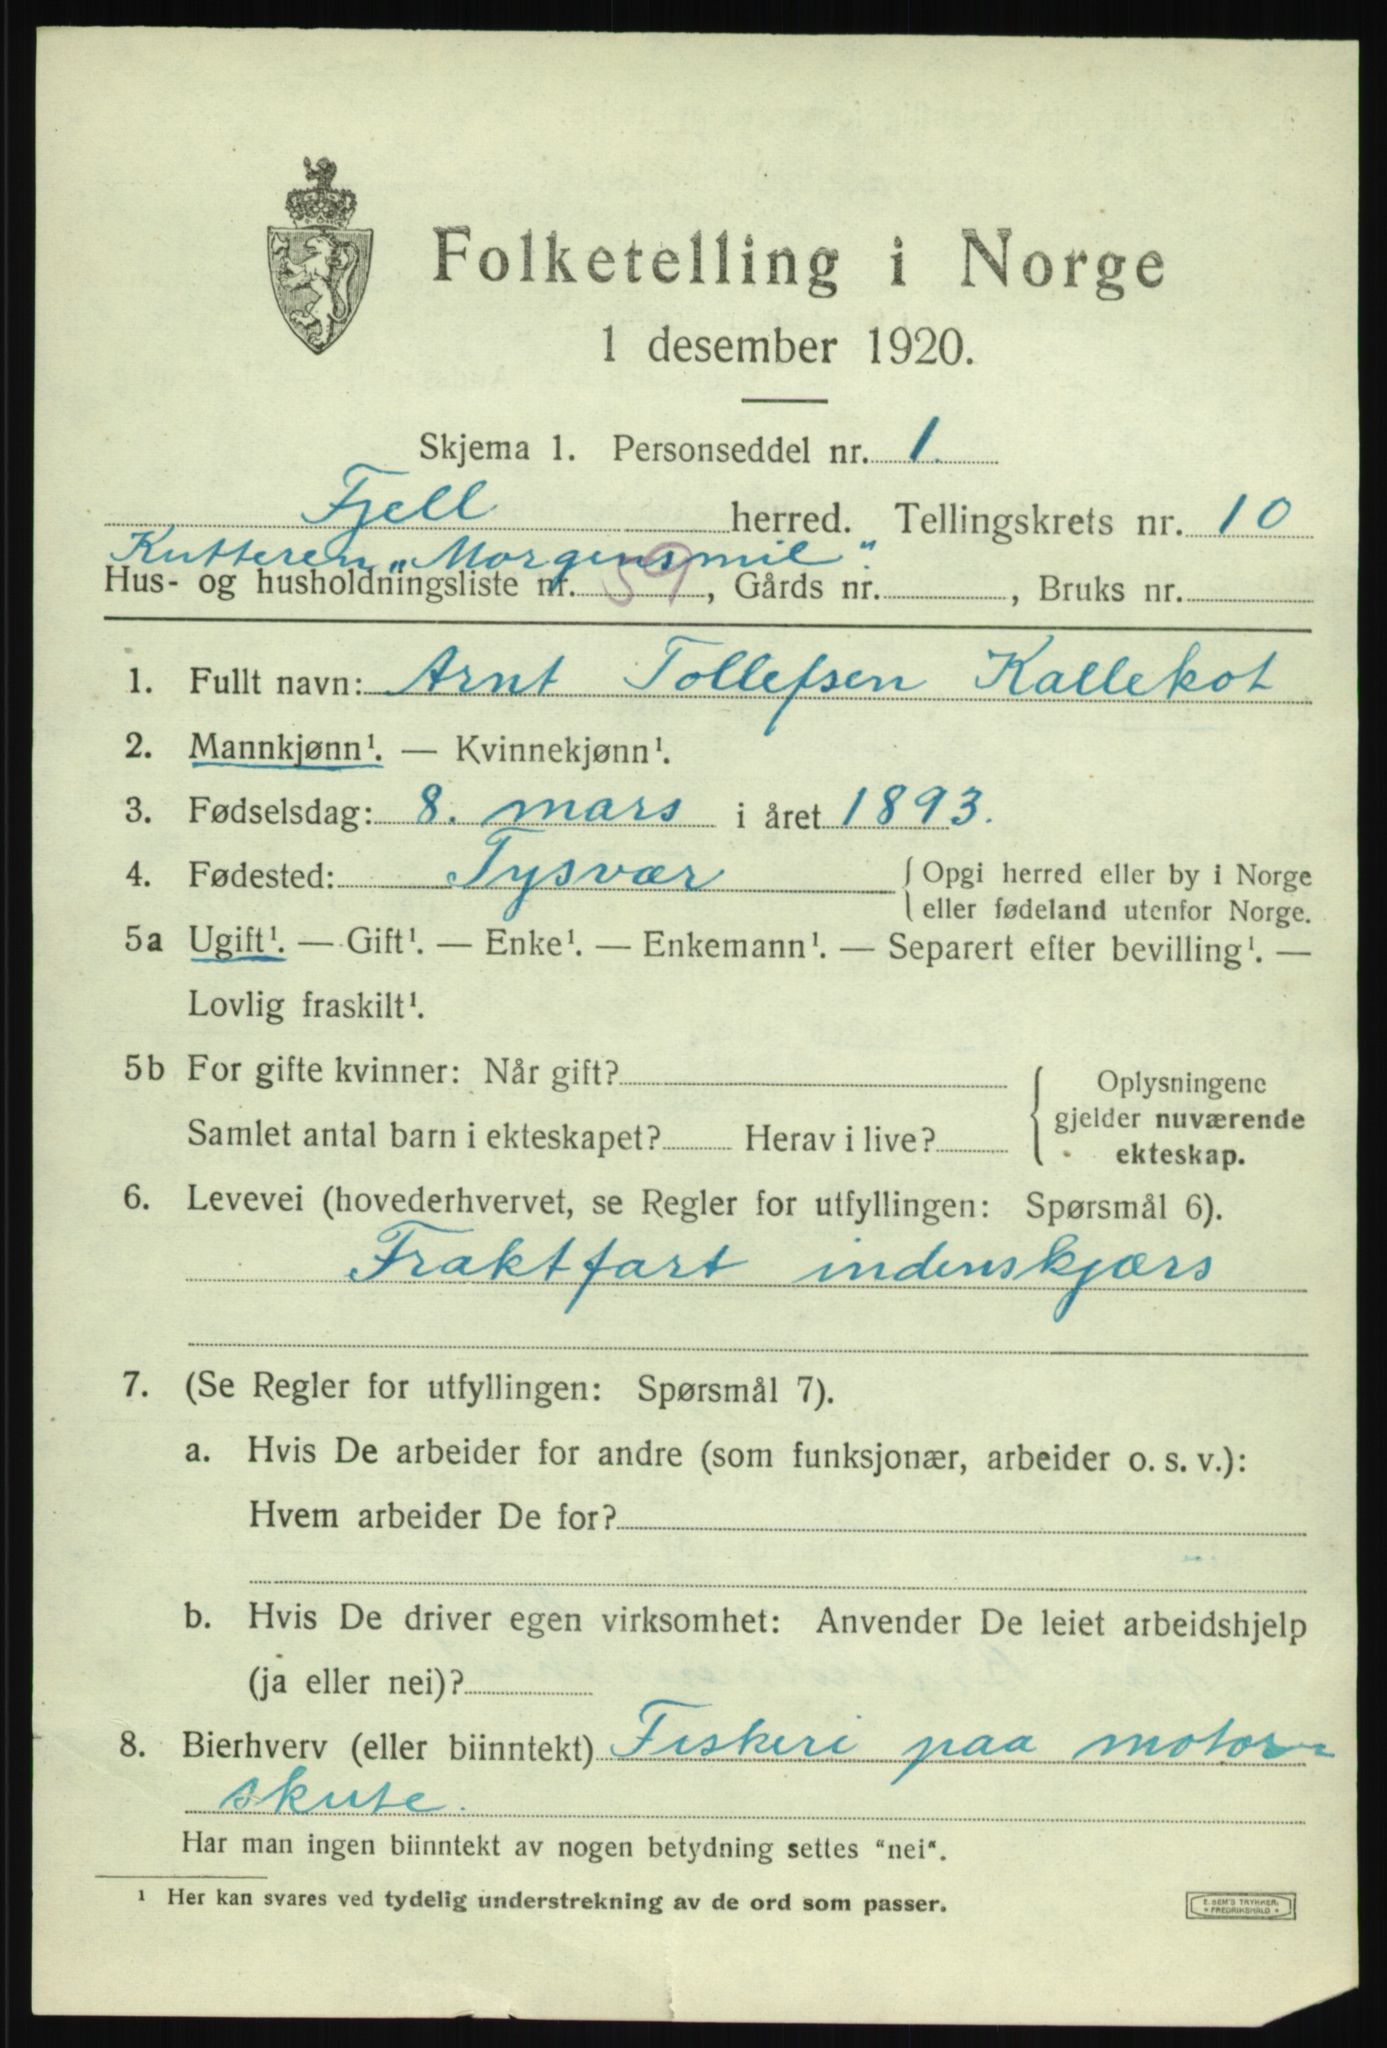 Folketelling i Norge
1 desember 1920.
Skjema 1. Personseddel nr. 1.
Fjell herred. Tellingskrets nr. 10
Kutteren „Morgensmil“.
Hus- og husholdningsliste nr. 59, Gårds nr. , Bruks nr.
1. Fullt navn: Arnt Tollefsen Kallekot
2. Mannkjønn¹. — Kvinnekjønn¹.
3. Fødselsdag: 8. mars i året 1893.
4. Fødested: Tysvær { Opgi herred eller by i Norge
eller fødeland utenfor Norge.
5a Ugift¹. — Gift¹. — Enke¹. — Enkemann¹. — Separert efter bevilling¹. —
Lovlig fraskilt¹.
5b For gifte kvinner: Når gift? { Oplysningene
gjelder nuværende
Samlet antal barn i ekteskapet? Herav i live? ekteskap.
6. Levevei (hovederhvervet, se Regler for utfyllingen: Spørsmål 6).
Fraktfart indenskjærs
7. (Se Regler for utfyllingen: Spørsmål 7).
a. Hvis De arbeider for andre (som funksjonær, arbeider o. s. v.):
Hvem arbeider De for?
b. Hvis De driver egen virksomhet: Anvender De leiet arbeidshjelp
(ja eller nei)?
8. Bierhverv (eller biinntekt) Fiskeri paa motor-
skute.
Har man ingen biinntekt av nogen betydning settes "nei".
¹ Her kan svares ved tydelig understrekning av de ord som passer.
E. SEM'S TRYKKERI
FREDRIKSHALD